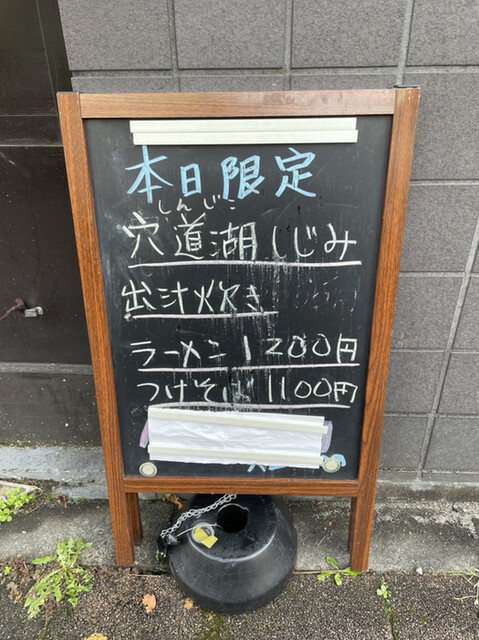 本日限定
しんじこ
穴道湖しじみ
出汁炊き
ラーメン 1200円
つけそば 1100円